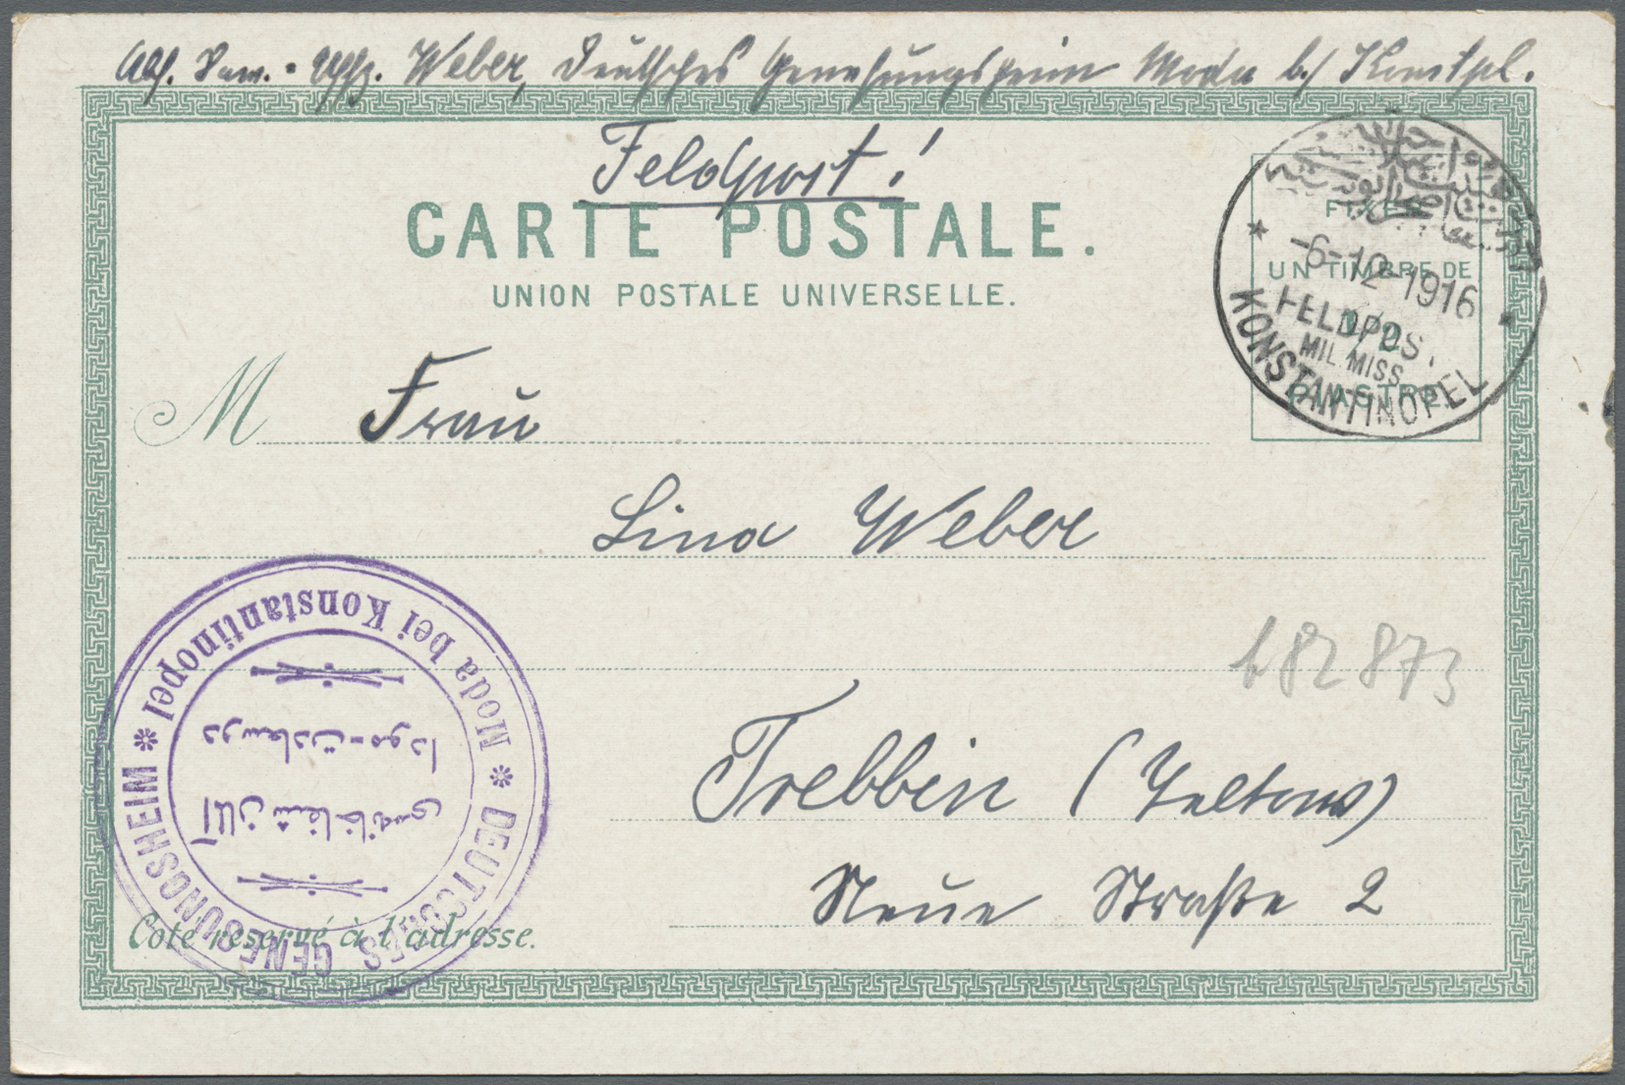 Abs. San.-Uffz. Weber, Deutsches Genesungsheim Moda b/ Konstpl.
Feldpost!
CARTE POSTALE.
UNION POSTALE UNIVERSELLE.
UN TIMBRE DE
PIASTRE
-6-12-1916
FELDPOST
MIL. MISS.
KONSTANTINOPEL
M Frau
Lina Weber
Trebbin (Teltow)
Neue Straße 2
b82873
Moda bei Konstantinopel
درسعادت-مودا
آلمان شفاخانه‌سى
DEUTSCHES GENESUNGSHEIM
Coté réservé à l'adresse.